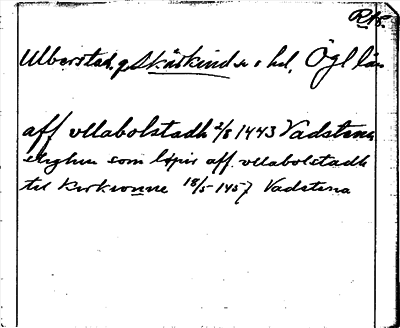 RAS.
Ulberstad, g. Skärkinds s o hd, Ögl län
aff vllabolstadh 2/8 1443 Vadstena
som löpir aff vllabolstadh
til kirkionne 18/5 1457 Vadstena